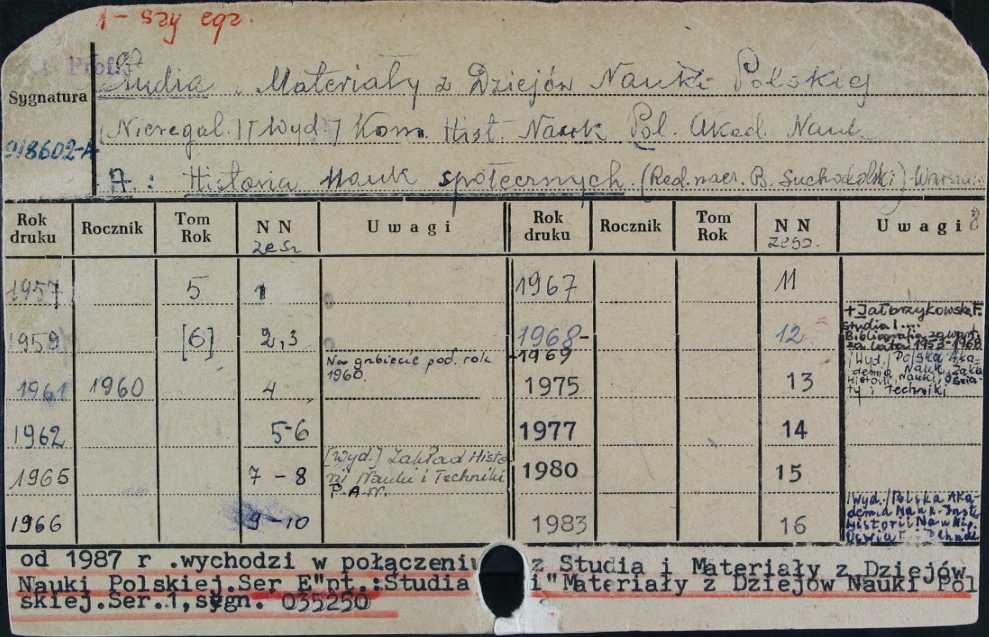 1-szy egz.
Prof.
Studia i Materiały z Dziejów Nauki Polskiej
Sygnatura
(Nieregul.) [Wyd.] Kom. Hist. Nauk Pol. Akad. Nauk
918602-A
A.: Historia nauk społecznych (Red. nacz. B. Suchodolski) Warszawa
Rok druku Rocznik Tom Rok NN zesz. Uwagi Rok druku Rocznik Tom Rok NN zesz. Uwagi
1957 5 1 1967 11
1959 [6] 2,3 1968-1969 12 + Jałbrzykowska F. Studia i... Bibliografia zawart. za lata 1953-1968.
1961 1960 4 Na grzbiecie pod. rok 1960. 1975 13 [Wyd.] Polska Akademia Nauk, Zakł. Historii Nauki, Oświaty i Techniki
1962 5-6 1977 14
1965 7-8 [Wyd.] Zakład Historii Nauki i Techniki P.A.N. 1980 15
1966 9-10 1983 16 [Wyd.] Polska Akademia Nauk. Inst. Historii Nauki, Oświaty i Techniki
od 1987 r .wychodzi w połączeniu z Studia i Materiały z Dziejów
Nauki Polskiej.Ser E"pt.:Studia i"Materiały z Dziejów Nauki Pol
skiej.Ser.1,sygn. 035250